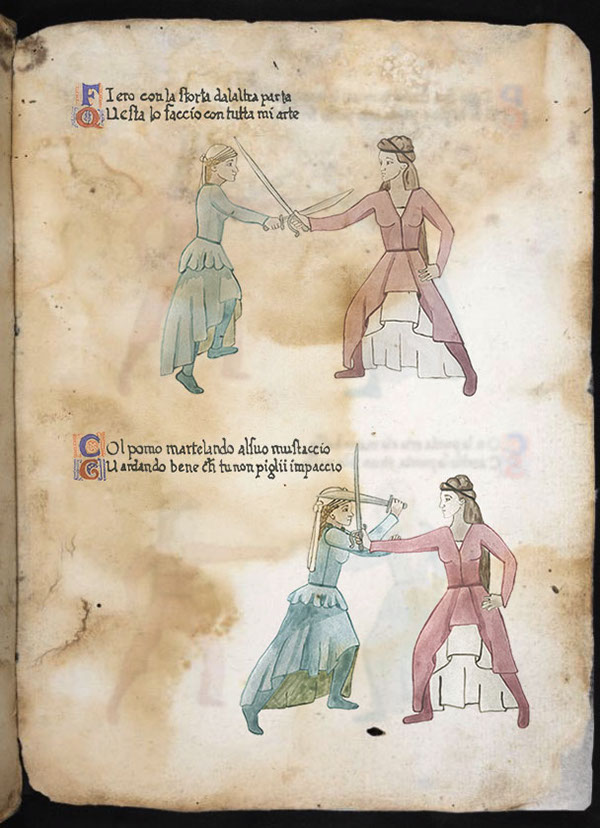 FIero con la storta dalaltra parta
QUesta lo faccio con tutta mi arte
COl pomo martelando alsuo mustaccio
GUardando bene cħ tu non piglii impaccio